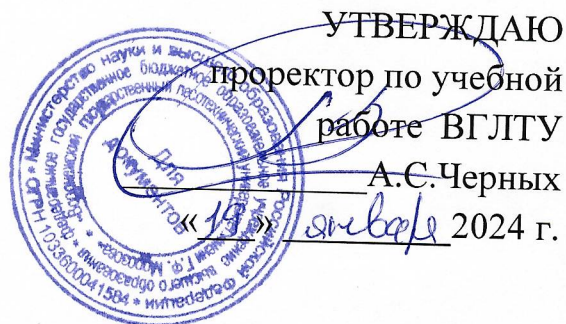 УТВЕРЖДАЮ
проректор по учебной
работе ВГЛТУ
А.С.Черных
«19» января 2024 г.
Министерство науки и высшего образования Российской Федерации
федеральное государственное бюджетное образовательное учреждение высшего образования
Воронежский государственный лесотехнический университет имени Г.Ф. Морозова
ОГРН 1033600041584
Для
документов